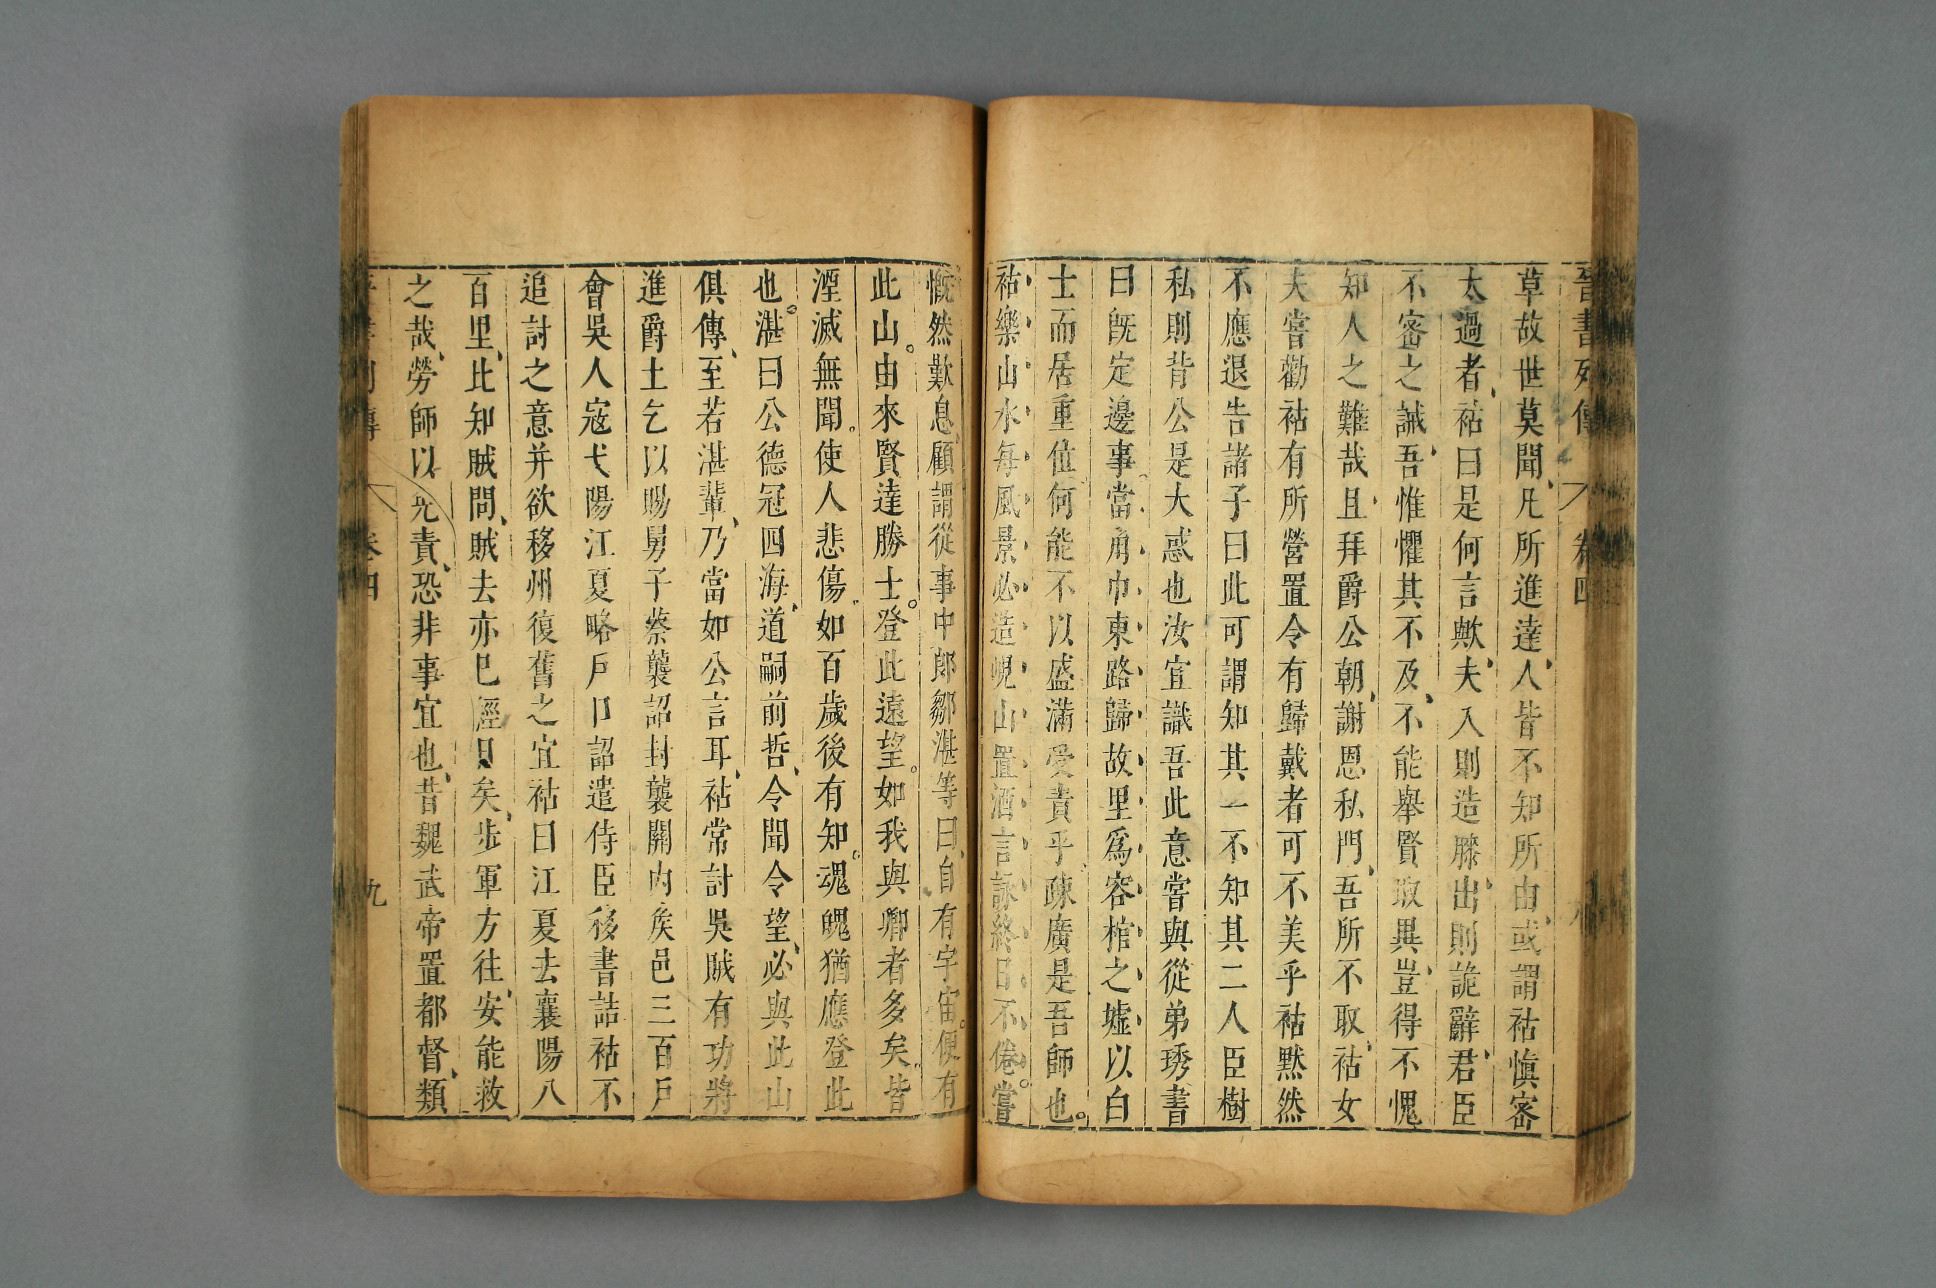 晉書列傳 卷四
草故世莫聞凡所進達人皆不知所由或謂祜慎密
太過者祜曰是何言歟夫入則造膝出則詭辭君臣
不密之誡吾惟懼其不及不能舉賢取異豈得不愧
知人之難哉且拜爵公朝謝恩私門吾所不取祜女
夫嘗勸祜有所營置令有歸戴者可不美乎祜默然
不應退告諸子曰此可謂知其一不知其二人臣樹
私則背公是大惑也汝宜識吾此意嘗與從弟琇書
曰旣定邊事當角巾東路歸故里爲容棺之墟以白
士而居重位何能不以盛滿受責乎疎廣是吾師也
祜樂山水每風景必造峴山置酒言詠終日不倦嘗
慨然歎息顧謂從事中郎鄒湛等曰自有宇宙便有
此山由來賢達勝士登此遠望如我與卿者多矣皆
湮滅無聞使人悲傷如百歲後有知魂魄猶應登此
也湛曰公德冠四海道嗣前哲令聞令望必與此山
俱傳至若湛輩乃當如公言耳祜常討吳賊有功將
進爵土乞以賜舅子蔡襲詔封襲關內矦邑三百戶
會吳人寇弋陽江夏略戶口詔遣侍臣移書詰祜不
追討之意并欲移州復舊之宜祜曰江夏去襄陽八
百里比知賊問賊去亦已經日矣步軍方往安能救
之哉勞師以免責恐非事宜也昔魏武帝置都督類
列傳 卷四 九